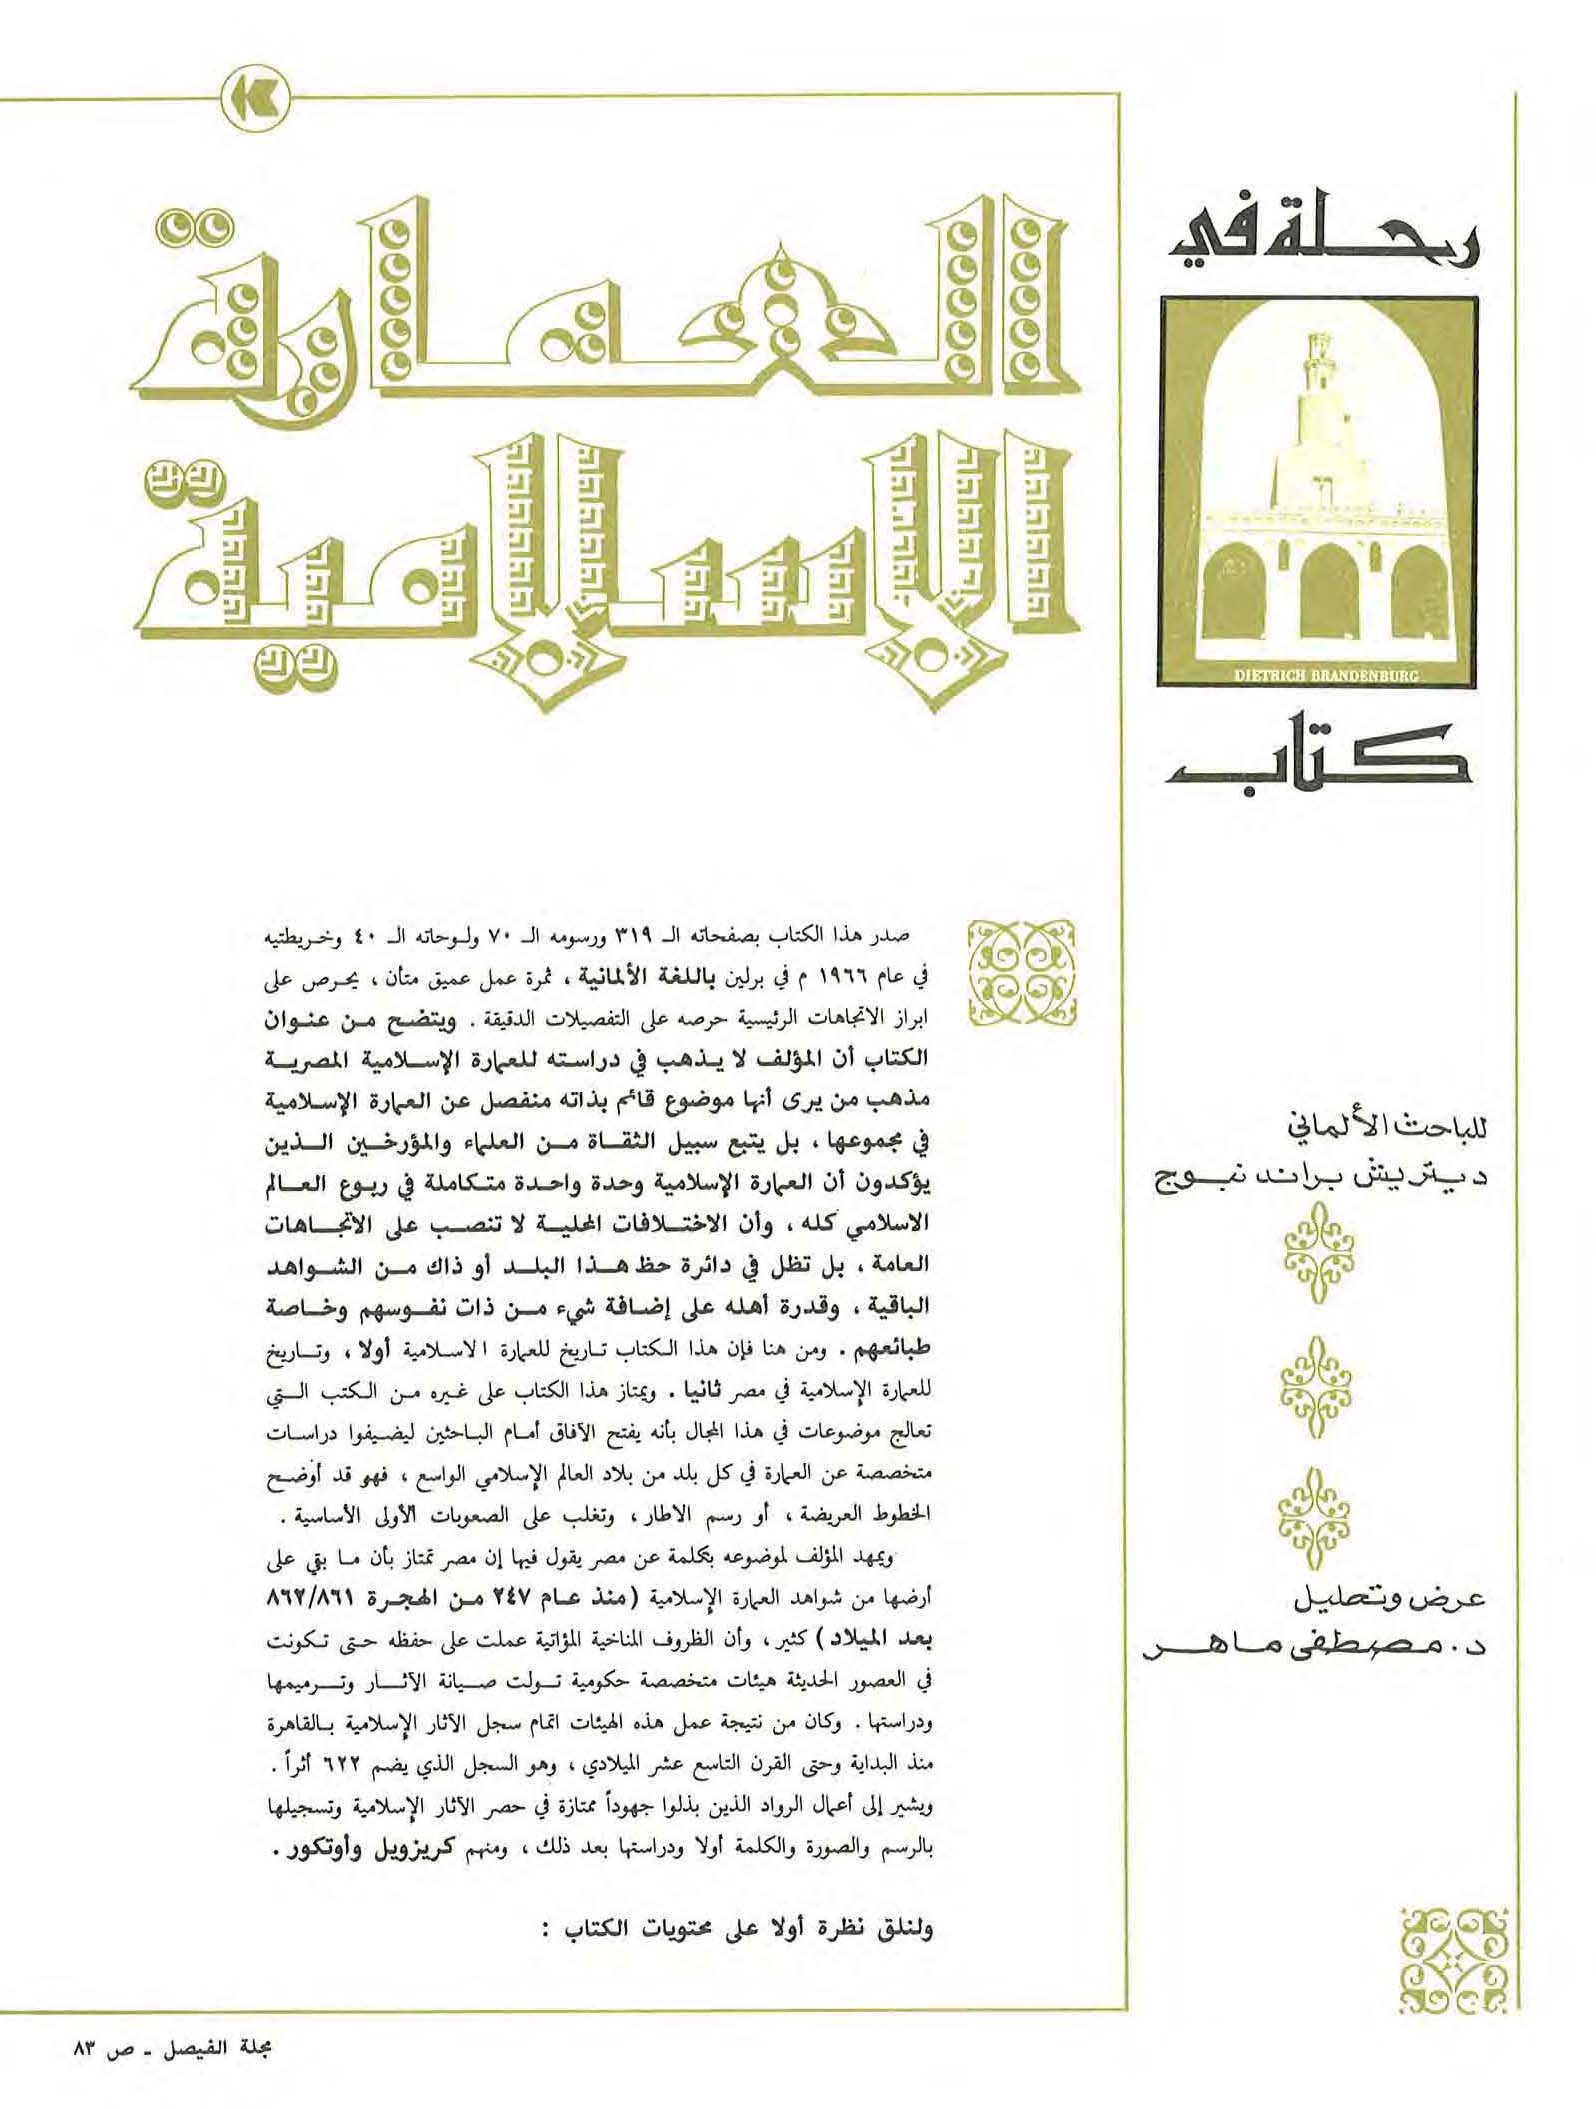 رحلة في
DIETRICH BRANDENBURG
كتاب
العمارة
الإسلامية
للباحث الألماني
ديتريش براند نبوج
عرض وتحليل
د. مصطفى ماهر
صدر هذا الكتاب بصفحاته الـ ٣١٩ ورسومه الـ ٧٠ ولوحاته الـ ٤٠ وخريطتيه
في عام ١٩٦٦ م في برلين باللغة الألمانية ، ثمرة عمل عميق متأن ، يحرص على
ابراز الاتجاهات الرئيسية حرصه على التفصيلات الدقيقة . ويتضح من عنوان
الكتاب أن المؤلف لا يذهب في دراسته للعمارة الإسلامية المصرية
مذهب من يرى أنها موضوع قائم بذاته منفصل عن العمارة الإسلامية
في مجموعها ، بل يتبع سبيل الثقاة من العلماء والمؤرخين الذين
يؤكدون أن العمارة الإسلامية وحدة واحدة متكاملة في ربوع العالم
الاسلامي كله ، وأن الاختلافات المحلية لا تنصب على الاتجاهات
العامة ، بل تظل في دائرة حظ هذا البلد أو ذاك من الشواهد
الباقية ، وقدرة أهله على إضافة شيء من ذات نفوسهم وخاصة
طبائعهم . ومن هنا فإن هذا الكتاب تاريخ للعمارة الاسلامية أولا ، وتاريخ
للعمارة الإسلامية في مصر ثانيا . ويمتاز هذا الكتاب على غيره من الكتب التي
تعالج موضوعات في هذا المجال بأنه يفتح الآفاق أمام الباحثين ليضيفوا دراسات
متخصصة عن العمارة في كل بلد من بلاد العالم الإسلامي الواسع ، فهو قد أوضح
الخطوط العريضة ، أو رسم الاطار ، وتغلب على الصعوبات الأولى الأساسية .
ويمهد المؤلف لموضوعه بكلمة عن مصر يقول فيها إن مصر تمتاز بأن ما بقي على
أرضها من شواهد العمارة الإسلامية (منذ عام ٢٤٧ من الهجرة ٨٦٢/٨٦١
بعد الميلاد) كثير ، وأن الظروف المناخية المؤاتية عملت على حفظه حتى تكونت
في العصور الحديثة هيئات متخصصة حكومية تولت صيانة الآثار وترميمها
ودراستها . وكان من نتيجة عمل هذه الهيئات اتمام سجل الآثار الإسلامية بالقاهرة
منذ البداية وحتى القرن التاسع عشر الميلادي ، وهو السجل الذي يضم ٦٢٢ أثراً .
ويشير إلى أعمال الرواد الذين بذلوا جهوداً ممتازة في حصر الآثار الإسلامية وتسجيلها
بالرسم والصورة والكلمة أولا ودراستها بعد ذلك ، ومنهم كريزويل وأوتكور .
ولنلق نظرة أولا على محتويات الكتاب :
مجلة الفيصل - ص ٨٣